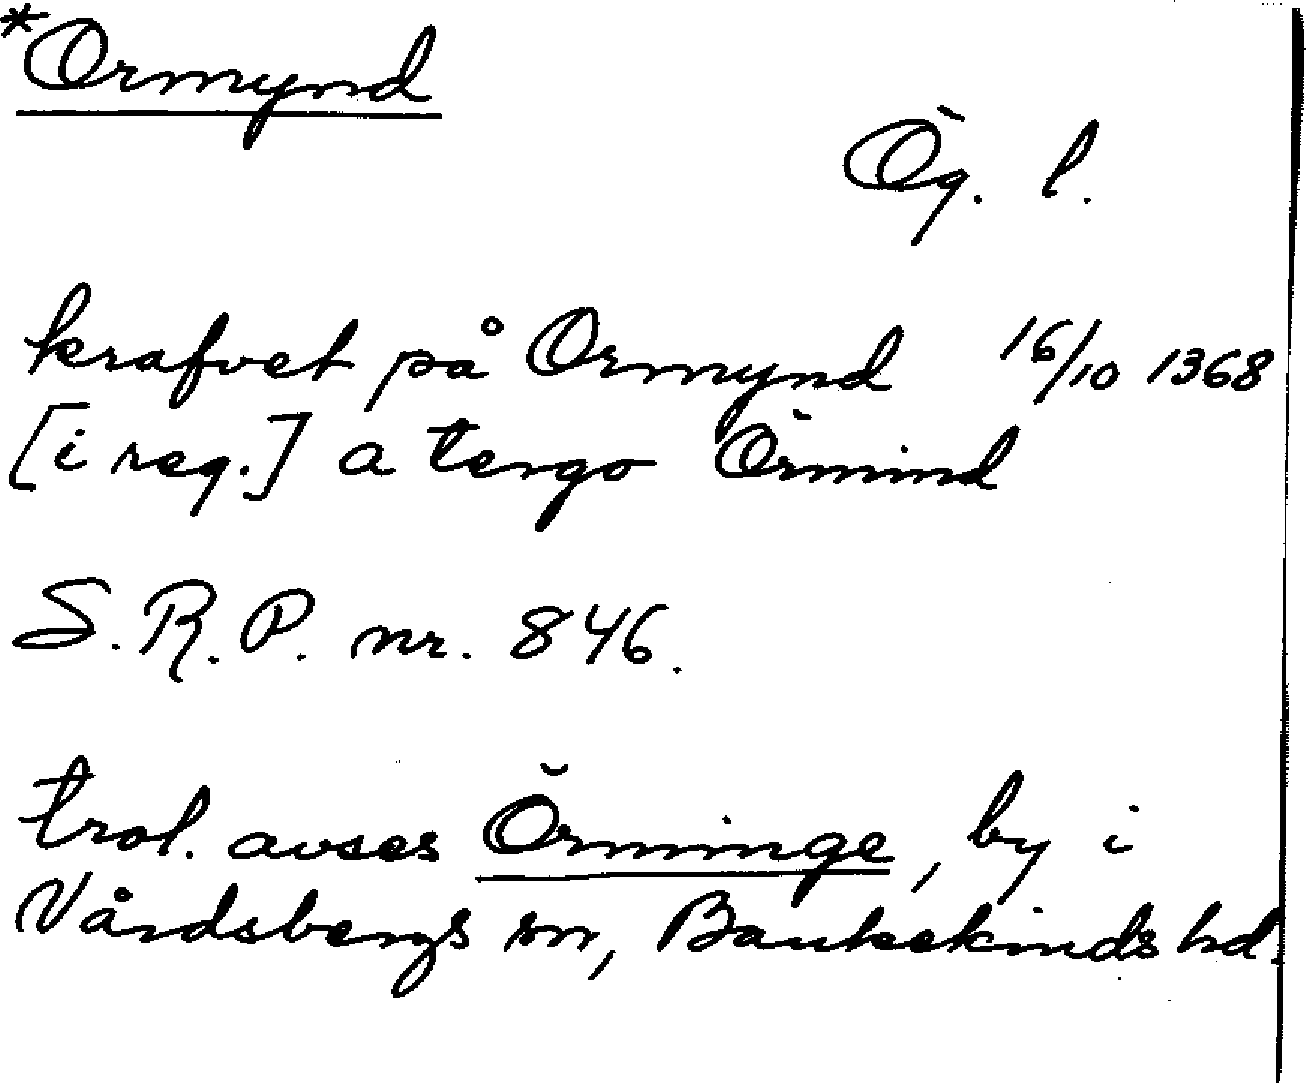 *Ormynd
Ög. l.
krafvet på Ormynd 16/10 1368
[i reg.] a tergo Örmind
S.R.P. nr. 846.
trol. avses Örminge, by i
Vårdsbergs sn, Bankekinds hd.